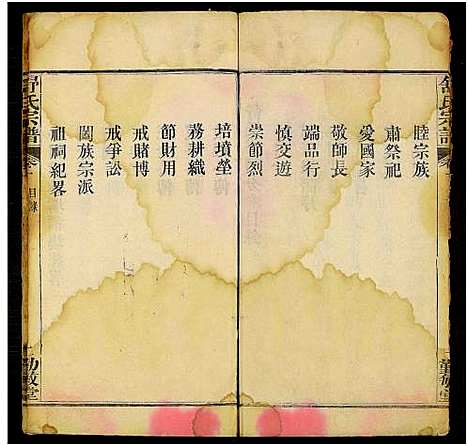 舒氏宗譜
睦宗族
肅祭祀
愛國家
敬師長
端品行
慎交遊
崇節烈
培墳塋
務耕織
節財用
戒賭博
戒爭訟
闔族宗派
祖祠紀畧
舒氏宗譜
目錄
敦敏堂